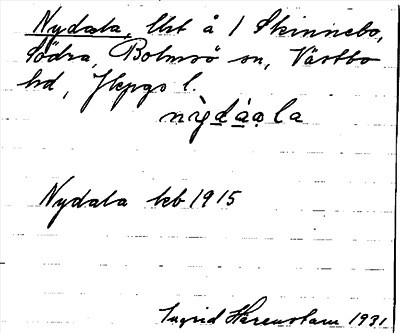 Nydala, lht å 1 Skinnebo,
Södra, Bolmsö sn, Västbo
hd, Jkpgs l.
nỳdạ̀ạla
Nydala kb 1915
Ingrid Härenstam 1931